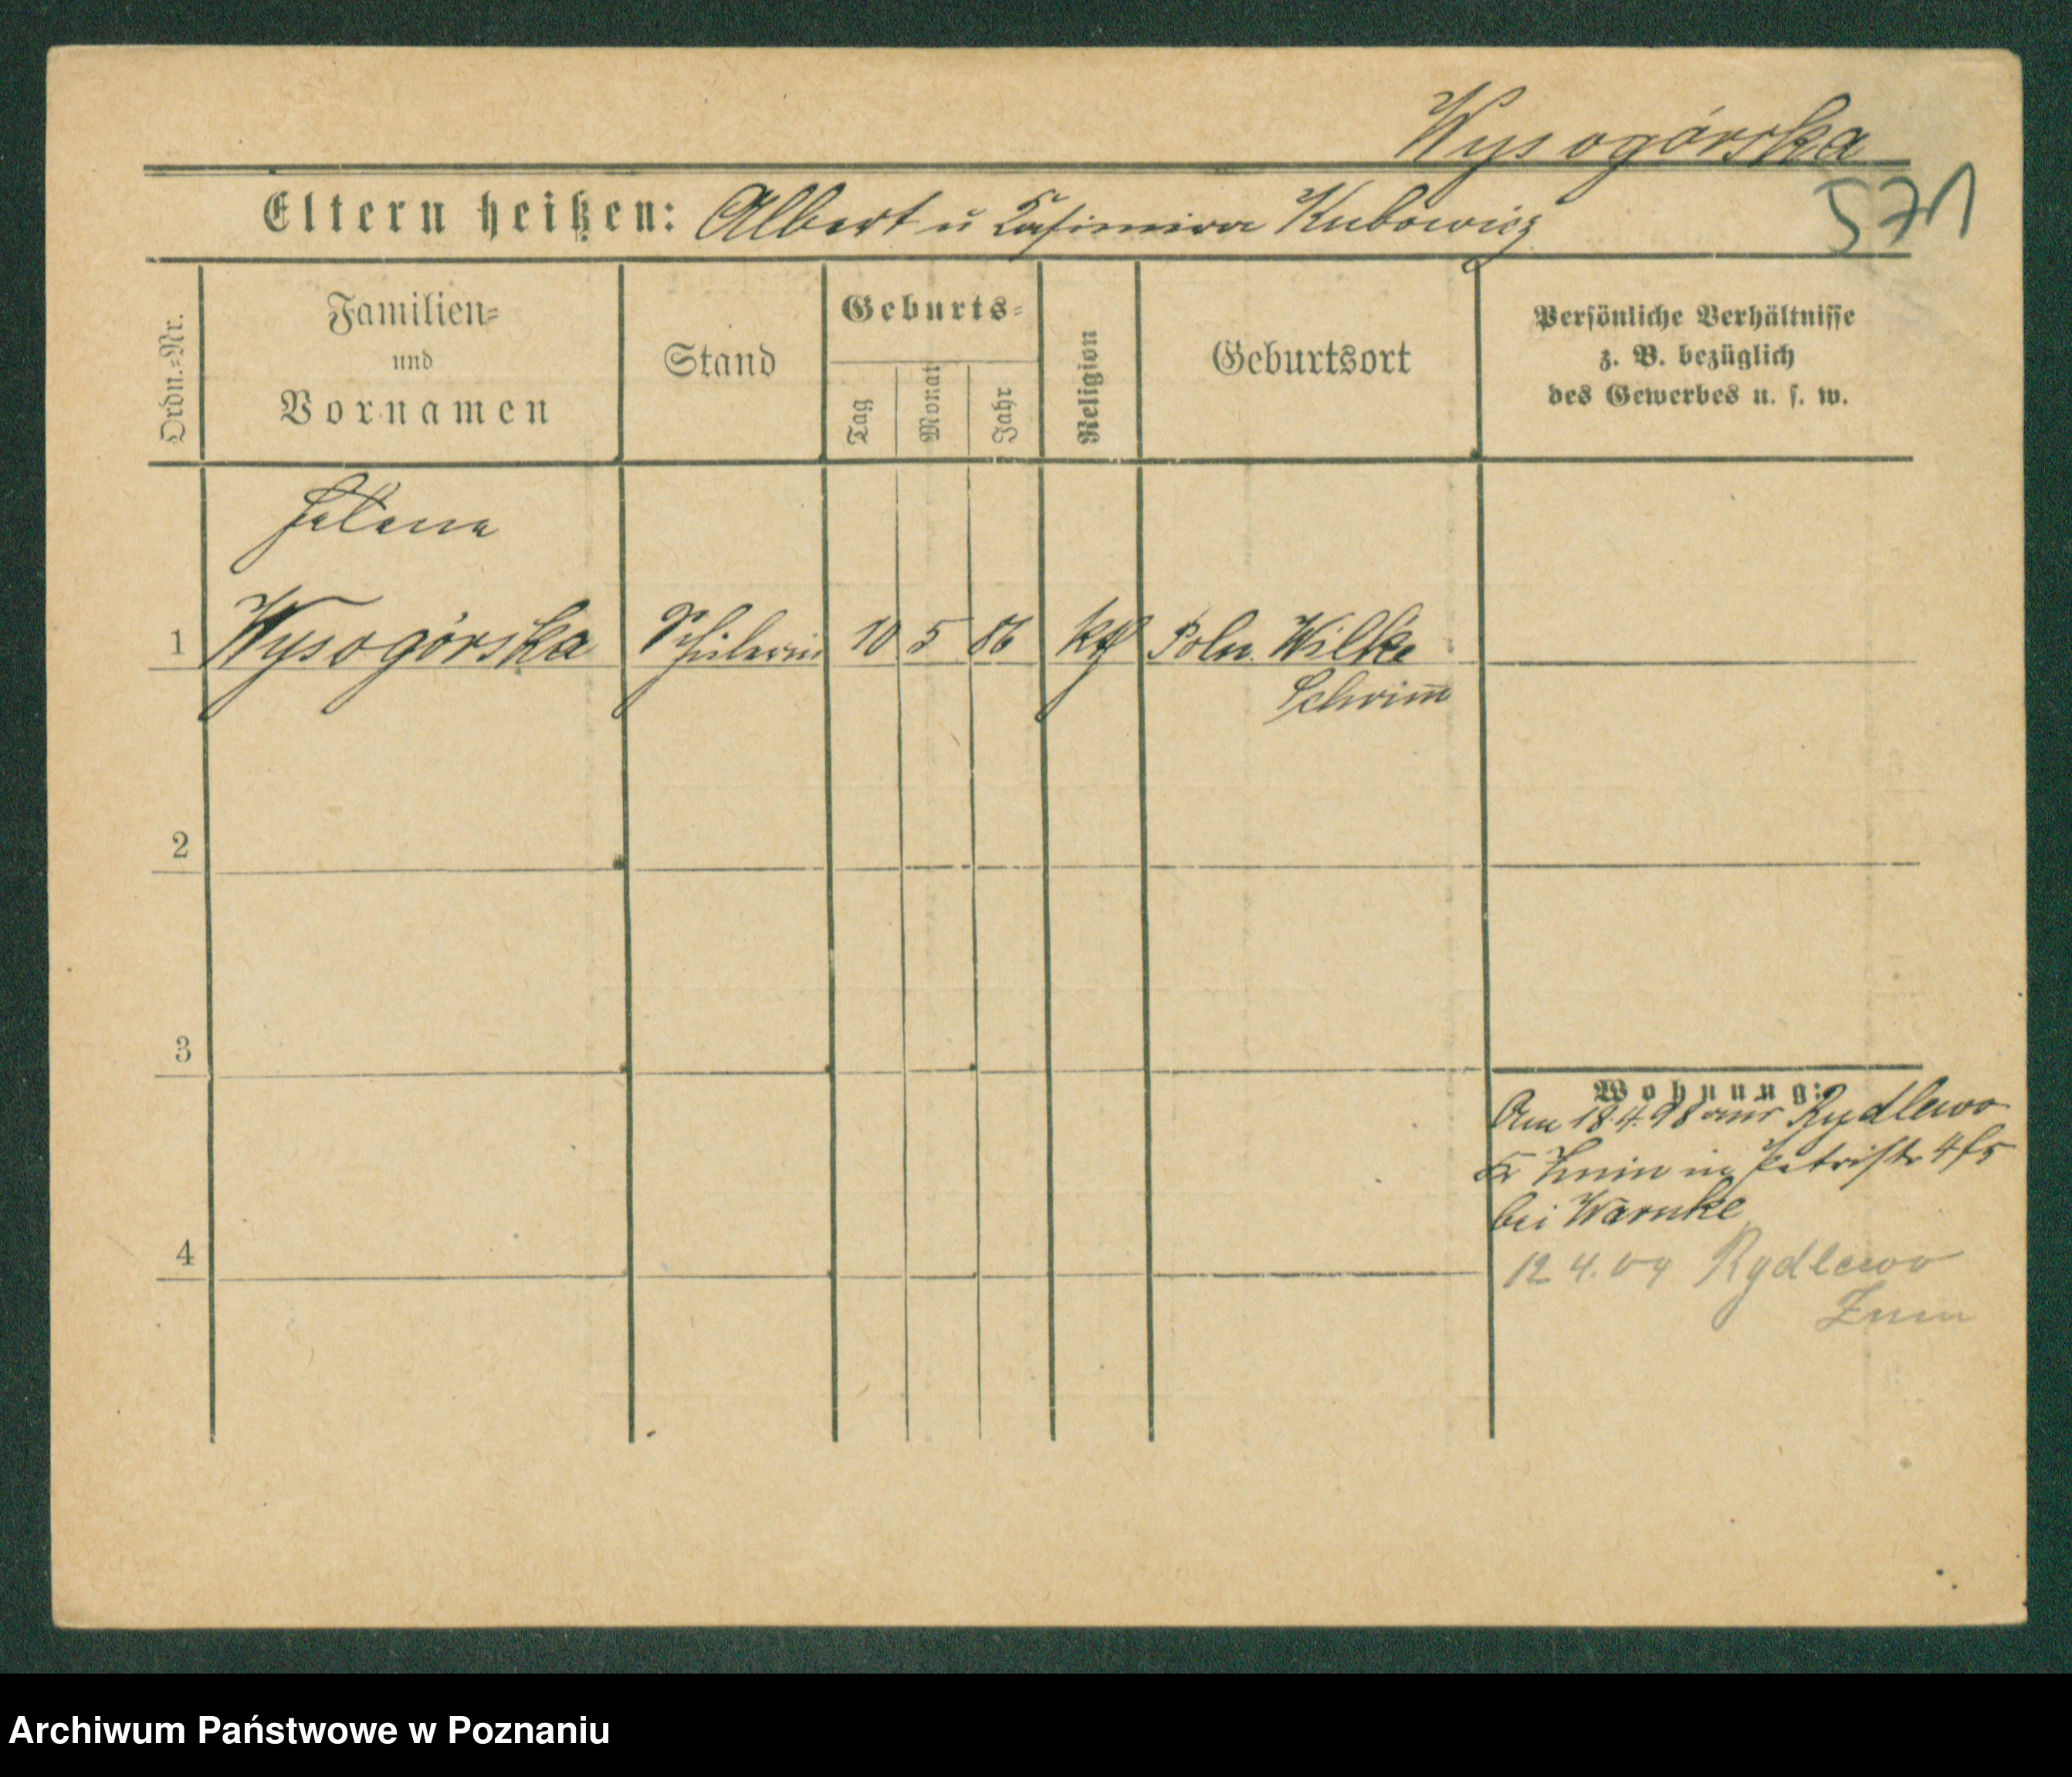 Wysogórska
571
Eltern heißen: Albert u Casimira Kubowicz
Ordn.-Nr.
Familien- und Vornamen
Stand
Geburts-
Tag
Monat
Jahr
Religion
Geburtsort
Persönliche Verhältnisse
z. B. bezüglich
des Gewerbes u. s. w.
Helena
1 Wysogórska Schülerin 10 5 86 kth Poln Wilke
Schrim̅
2
3
4
Wohnung:
Am 18.4.98 aus Rydlewo
Kr Znin in Petristr 4
bei Warnke
12 4. 04 Rydlewo
Znin
Archiwum Państwowe w Poznaniu